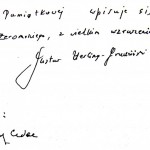 Pamiątkowej wpisuje się
Żeromskiego, z wielkim wzruszeniem
Gustaw Herling-Grudziński
: